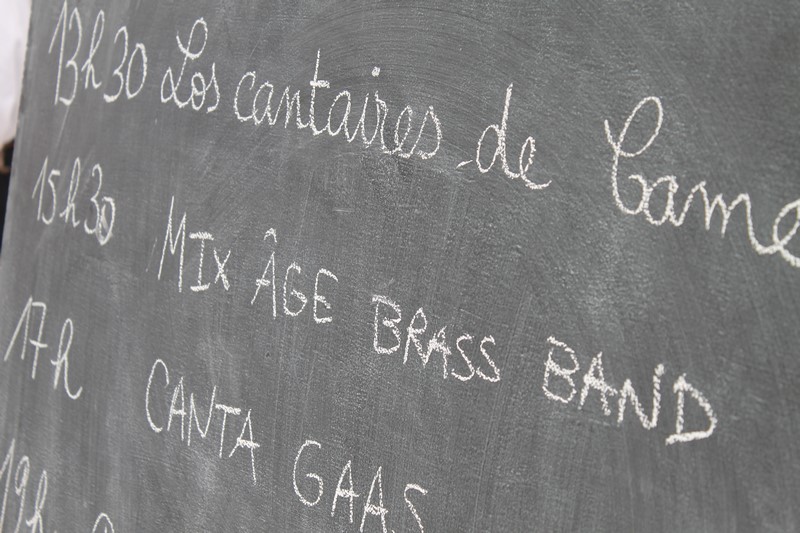 13h30 Los cantaires de Came
15h30 MIX ÂGE BRASS BAND
17h CANTA GAAS
19h